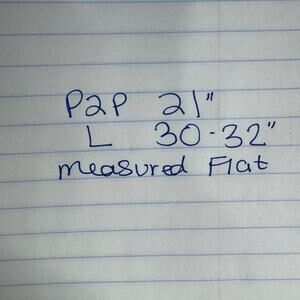 P2P 21"
L 30-32"
measured Flat